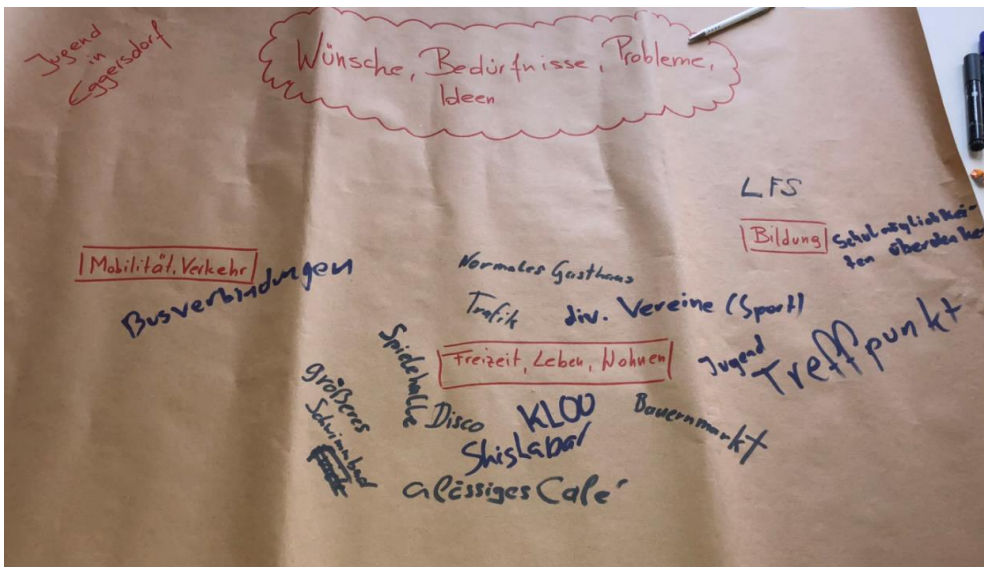 Jugend
in
Eggersdorf
Wünsche, Bedürfnisse, Probleme,
Ideen
LFS
Bildung
Schulmöglichkei-
ten überdenken
Mobilität, Verkehr
Busverbindungen
Normales Gasthaus
Trafik
div. Vereine (Sport)
Freizeit, Leben, Wohnen
Jugend
Treffpunkt
Spielehalle
größeres
Schwimmbad
Disco
KLOO
Shishabar
Bauernmarkt
a lässiges Café